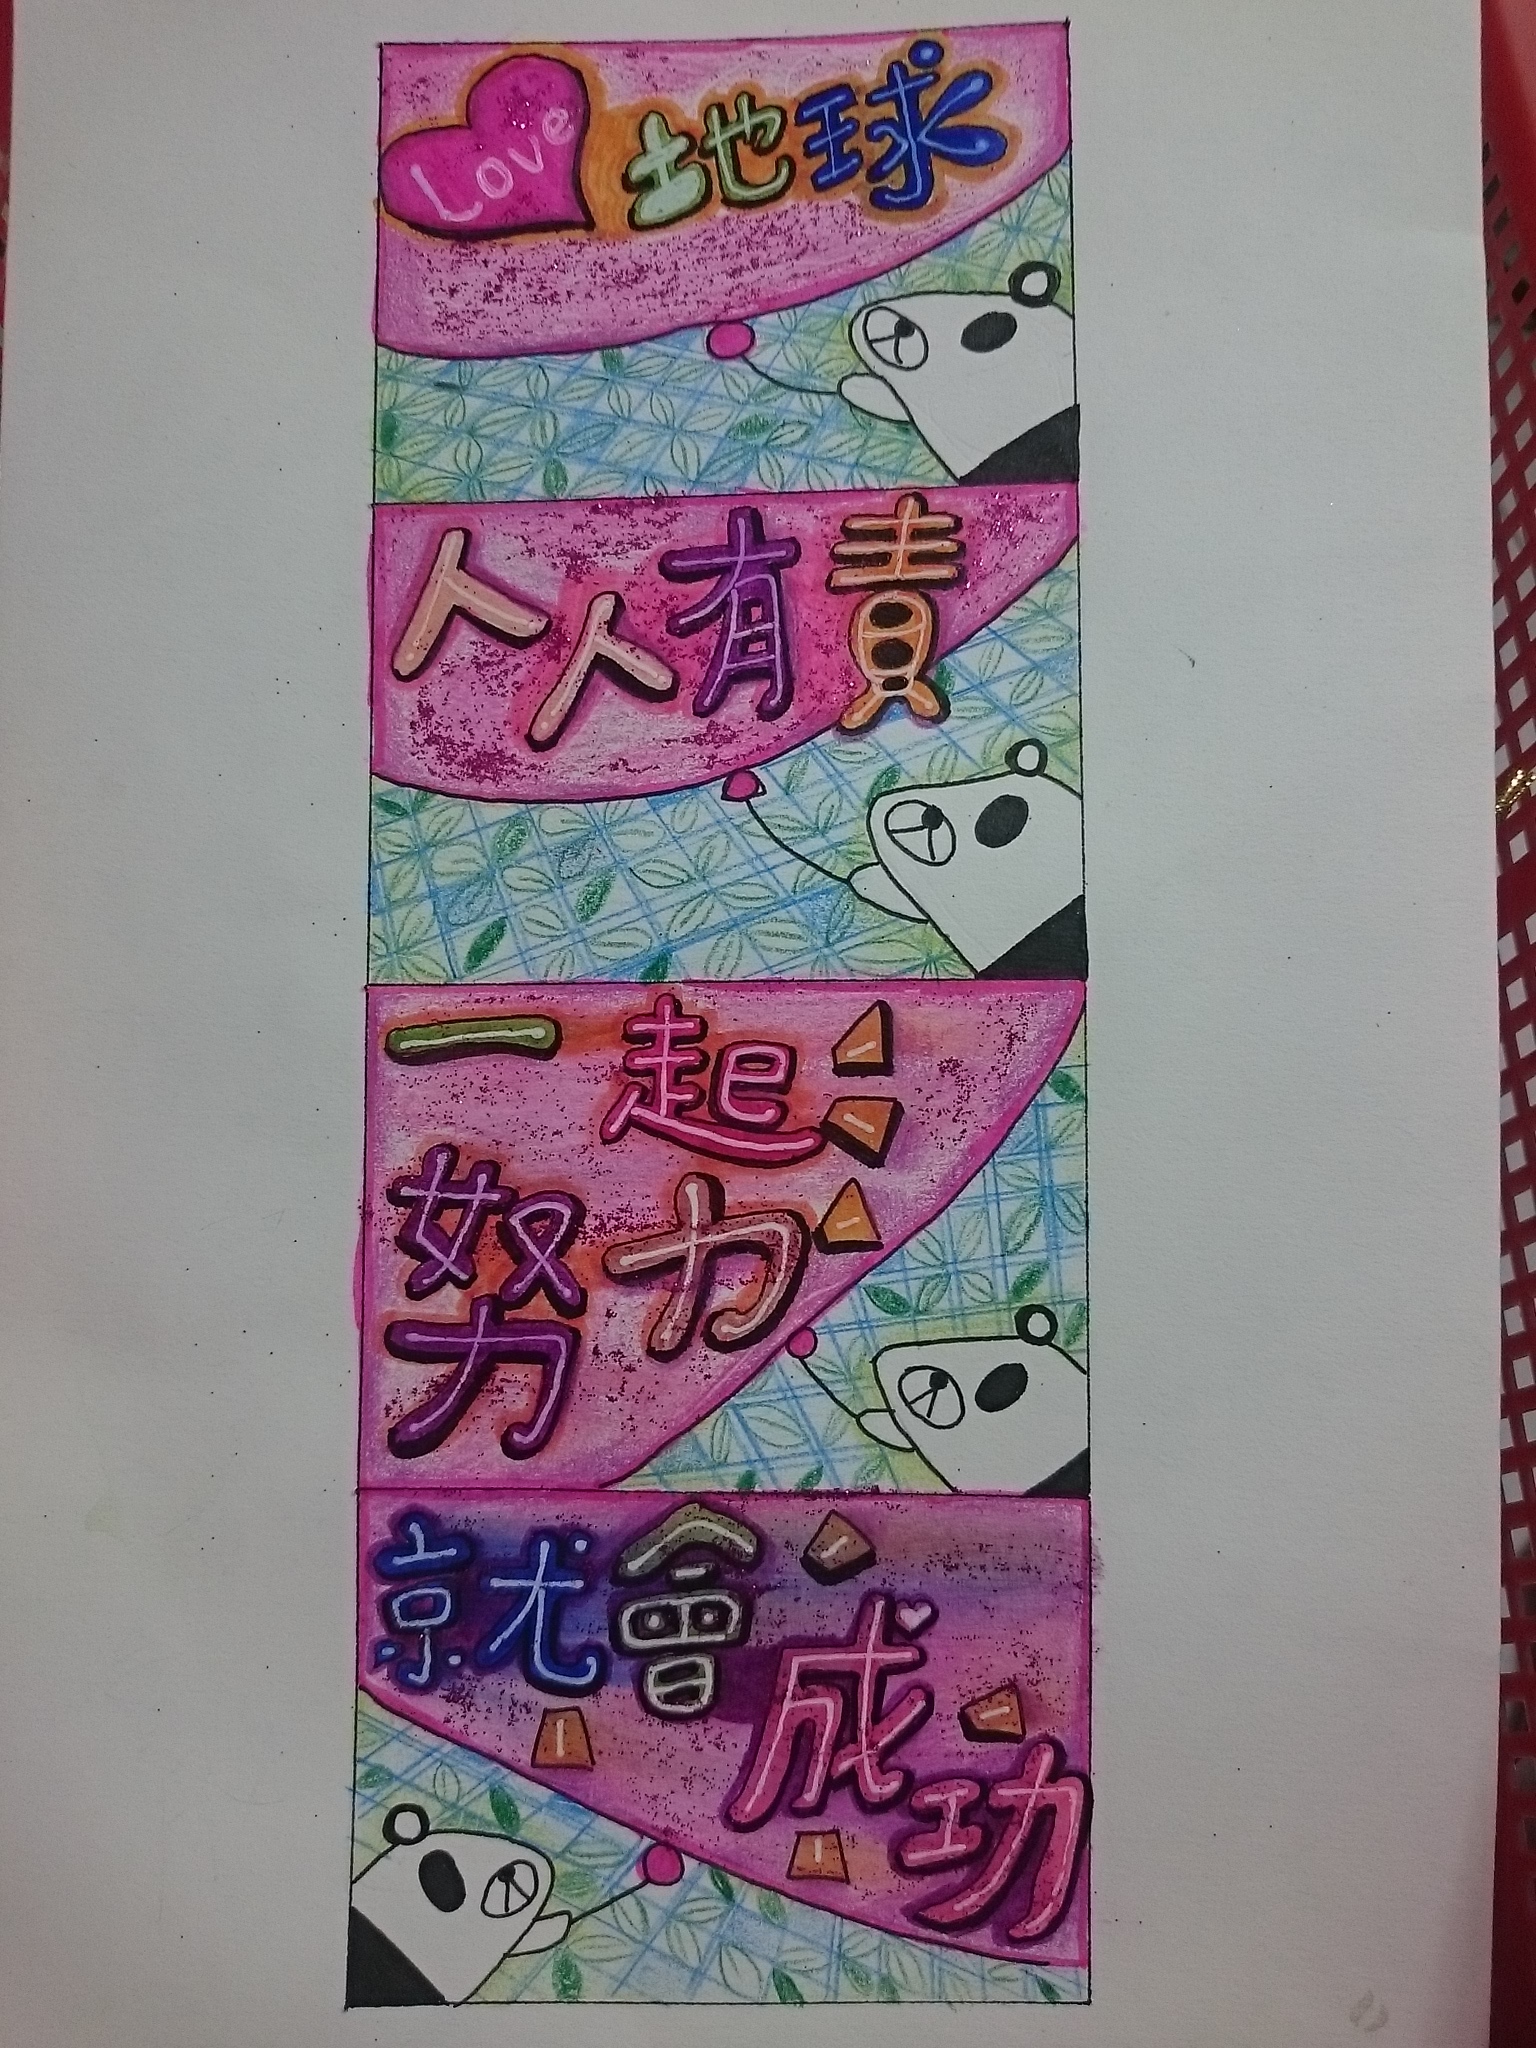 Love 地球
人人有責
一起
努力
就會成功